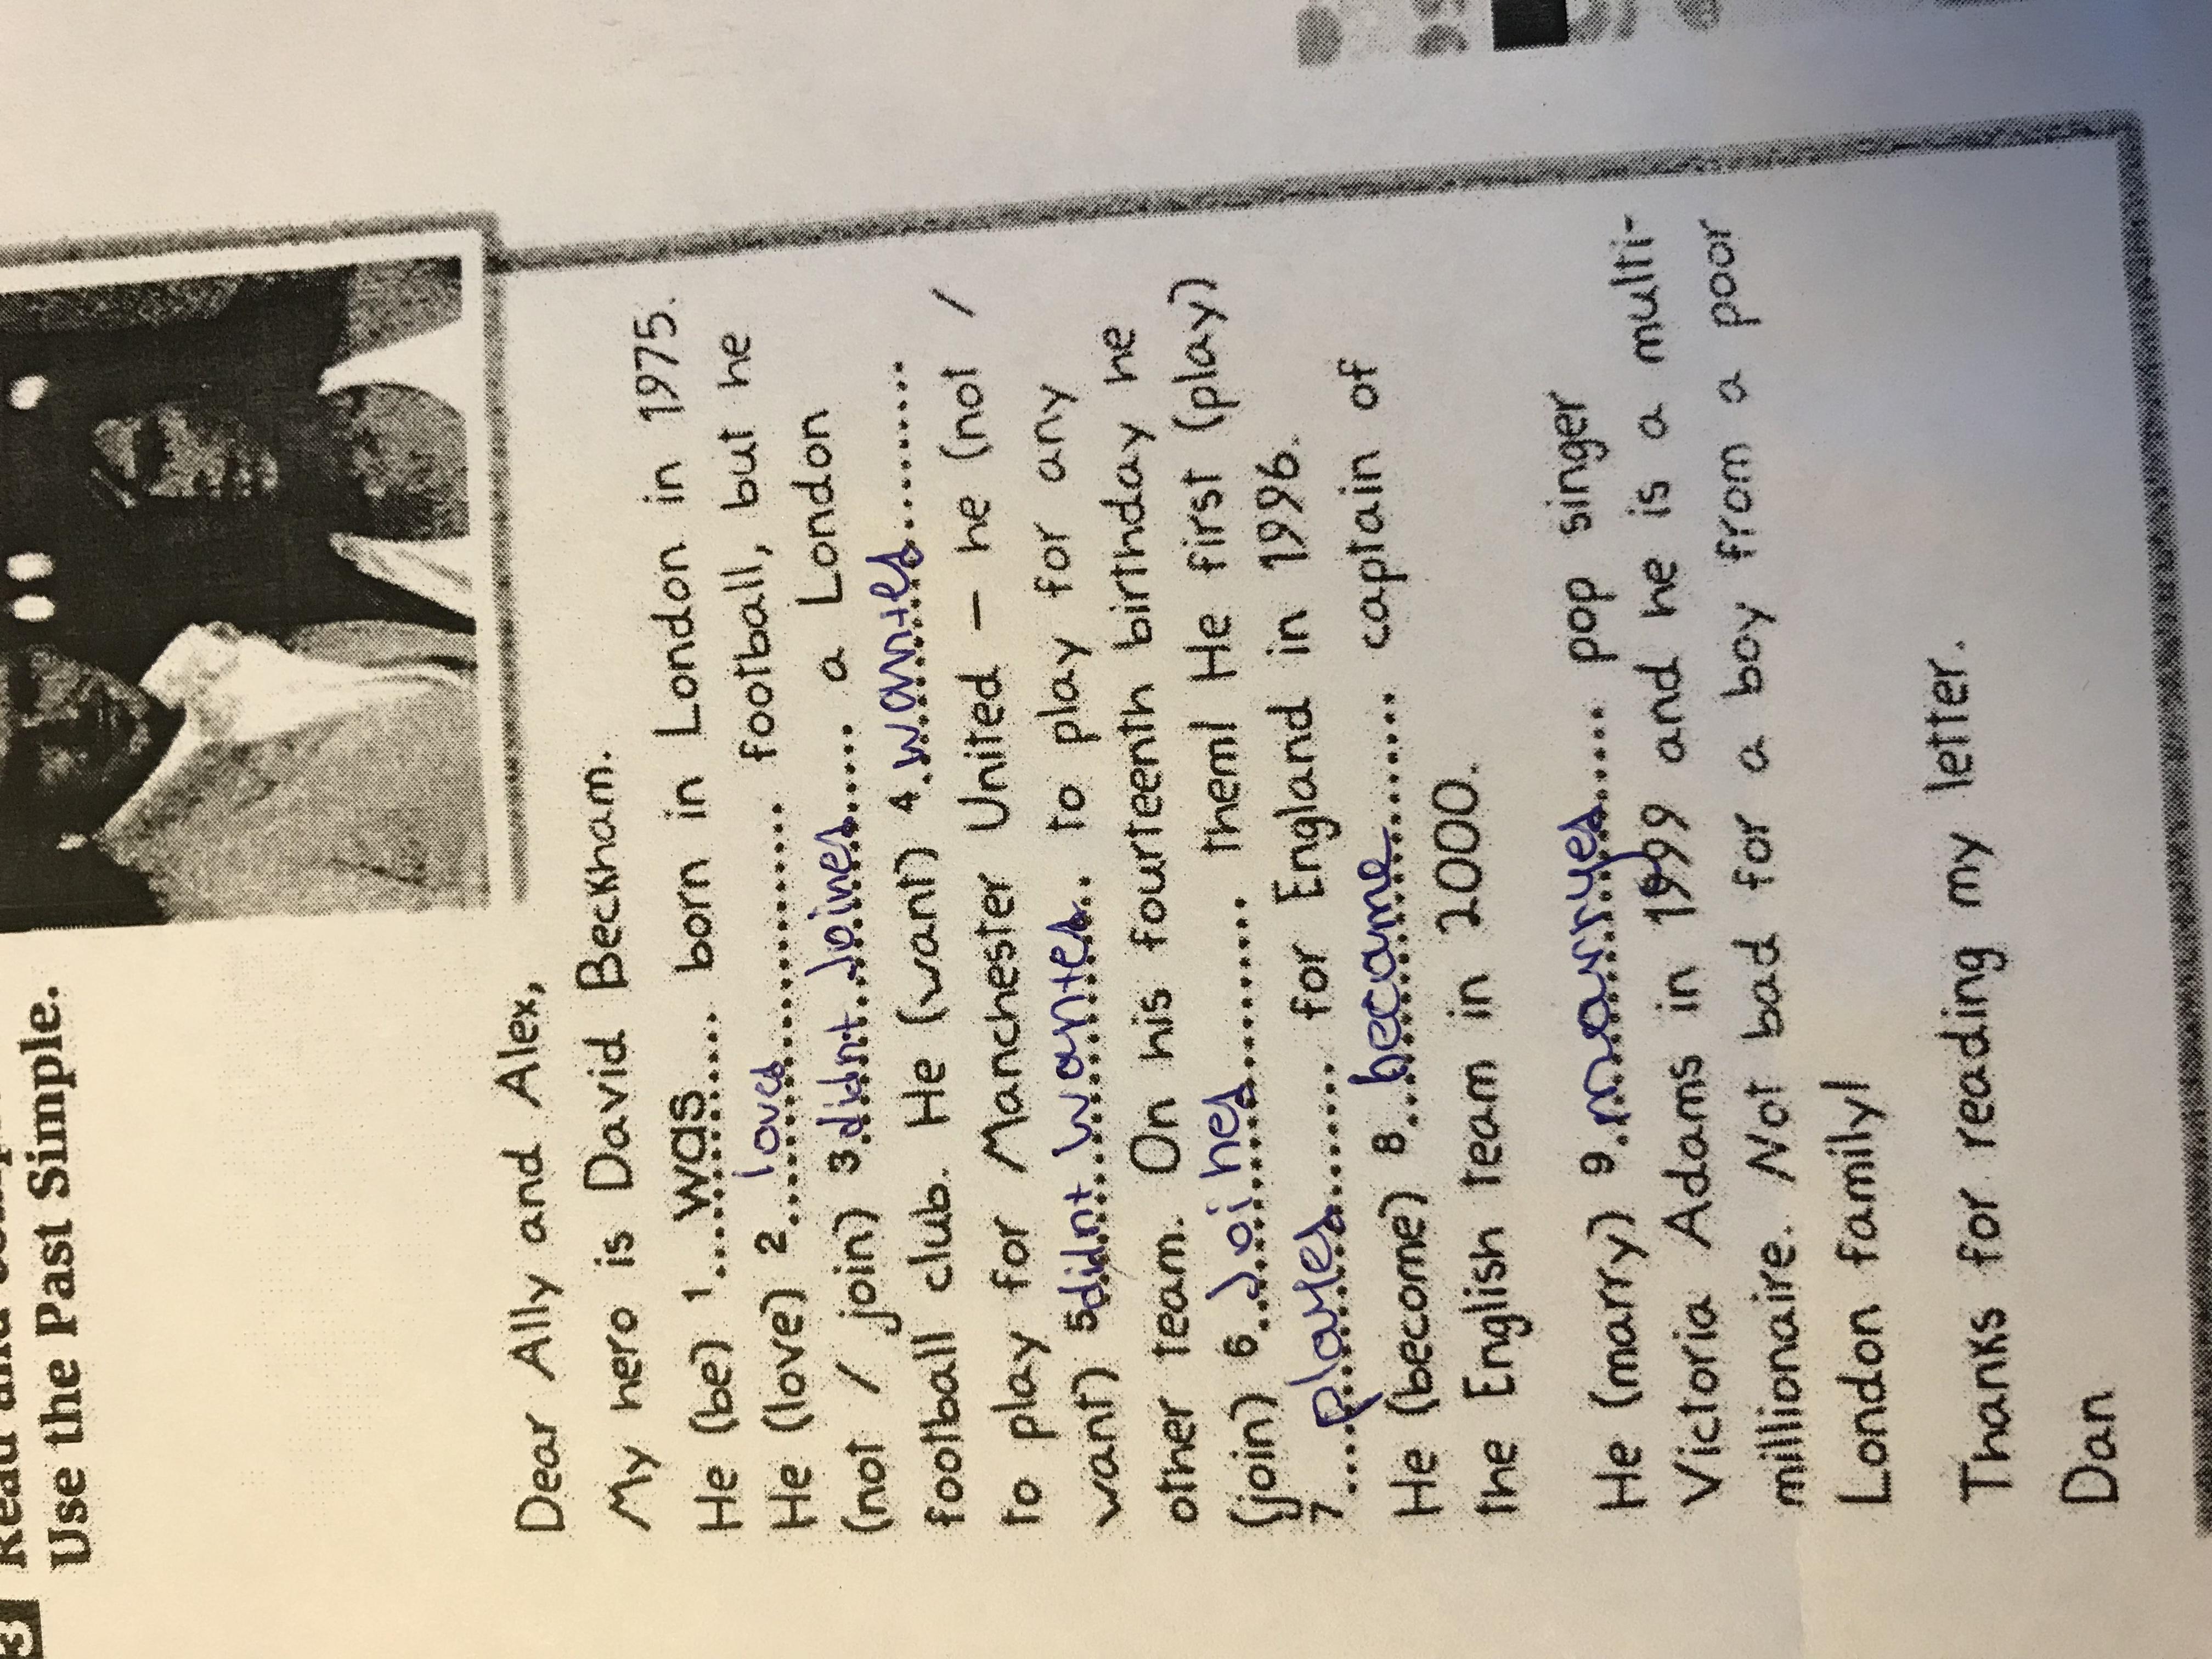 3 Read and
Use the Past Simple.
Dear Ally and Alex,
My hero is David Beckham.
He (be) 1 ...was..... born in London in 1975.
He (love) 2 ...loved............ football, but he
(not / join) 3 didnt Joined..... a London
football club. He (want) 4 .wanted.........
to play for Manchester United – he (not /
want) 5 didnt wanted.. to play for any
other team. On his fourteenth birthday he
(join) 6 ..Joined............ them! He first (play)
7 ....played.......... for England in 1996.
He (become) 8 ..became......... captain of
the English team in 2000.
He (marry) 9 .marryed..... pop singer
Victoria Adams in 1999 and he is a multi-
millionaire. Not bad for a boy from a poor
London family!
Thanks for reading my letter.
Dan